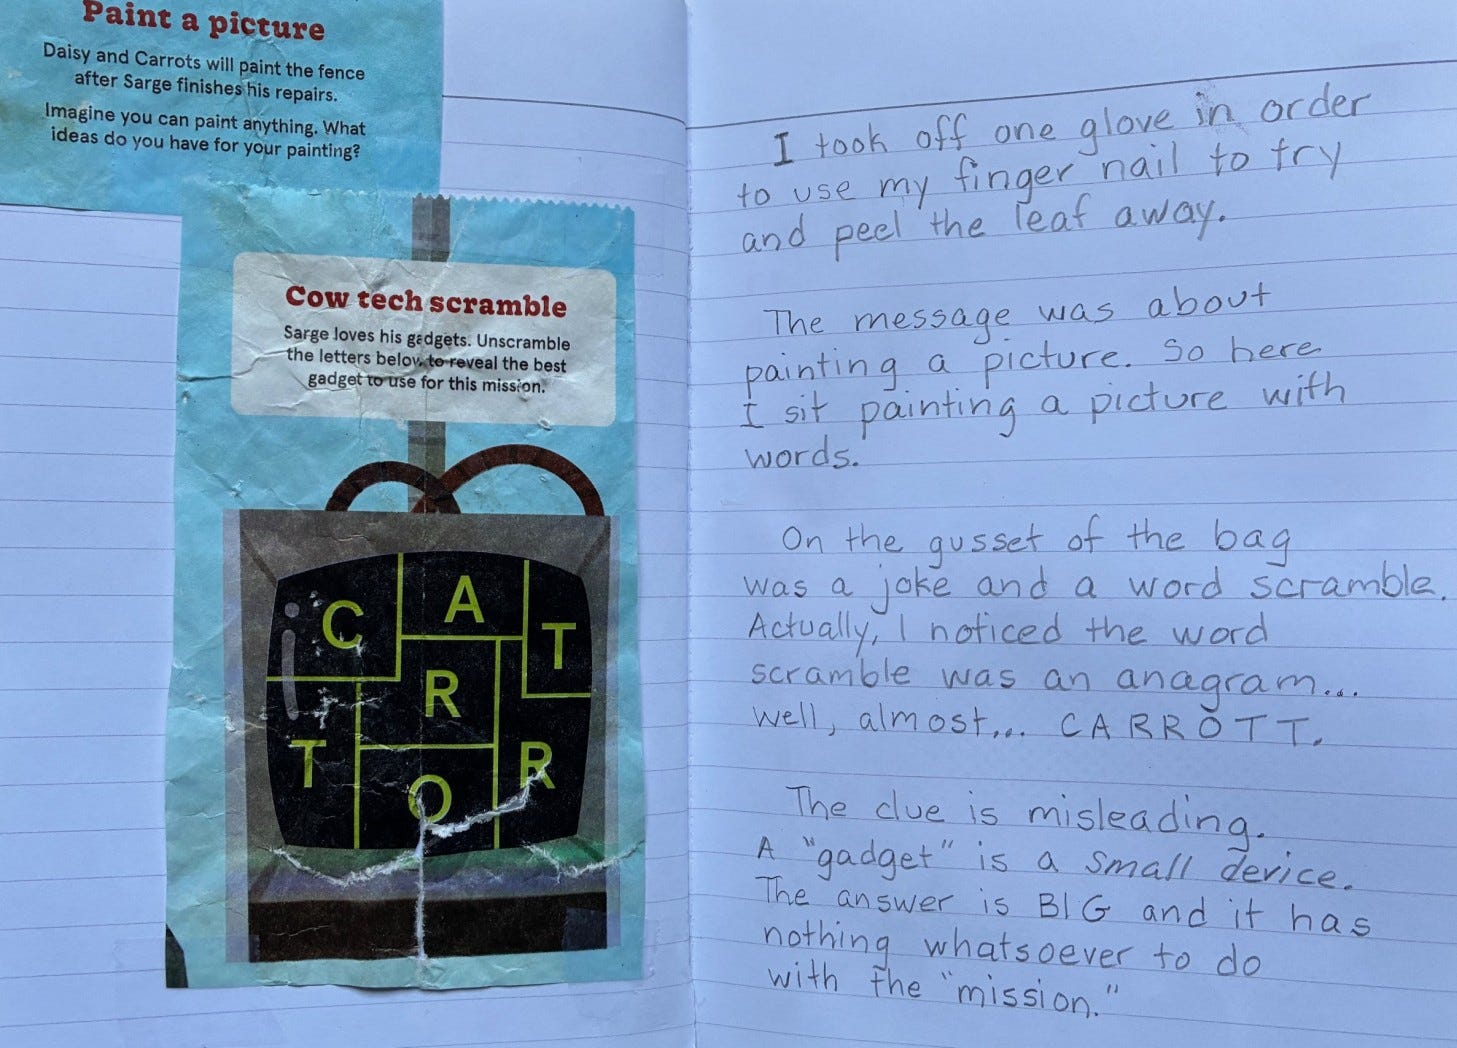 Paint a picture
Daisy and Carrots will paint the fence
after Sarge finishes his repairs.
Imagine you can paint anything. What
ideas do you have for your painting?
Cow tech scramble
Sarge loves his gadgets. Unscramble
the letters below to reveal the best
gadget to use for this mission.
C A T
R
T O R
I took off one glove in order
to use my finger nail to try
and peel the leaf away.
The message was about
painting a picture. So here
I sit painting a picture with
words.
On the gusset of the bag
was a joke and a word scramble.
Actually, I noticed the word
scramble was an anagram...
well, almost... CARROTT.
The clue is misleading.
A "gadget" is a small device.
The answer is BIG and it has
nothing whatsoever to do
with the "mission."